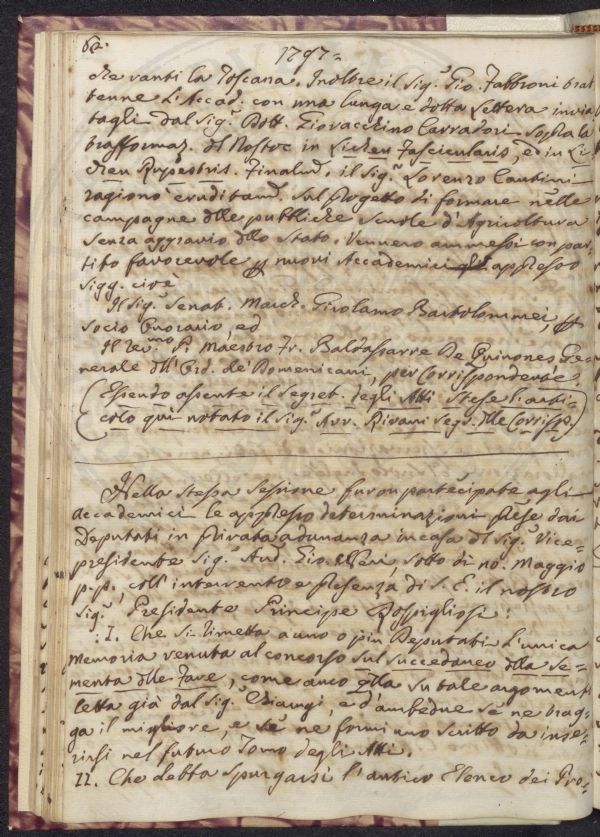 62.
1797=
che vanti la Toscana. Inoltre il Sig.r Gio. Fabbroni trat
tenne l'Accad.a con una lunga e dotta Lettera invia
tagli dal Sig.r Dott. Giovacchino Carradori Sopra la
trasformaz. del Nostoc in Lichen Fascicularis, ed in Li=
chen Rupestris. Finalm. il Sig.r Lorenzo Cantini
ragionò eruditam. sul Progetto di formare nelle
campagne delle pubbliche Scuole d'Agricoltura
senza aggravio dello Stato. Vennero ammessi con par=
tito favorevole p nuovi Accademici gli appresso
Sigg. cioè
Il Sig.r Senat. March. Girolamo Bartolommei, p
socio Onorario, ed
Il rev.mo P. Maestro Fr. Baldassarre De Quinones Ge=
nerale dell'Ord. de' Domenicani, per Corrispondente.
(Essendo assente il Segret. degli Atti stese l'arti=
colo qui notato il Sig.r Avv. Rivani Segr. delle Corrisp.)
Nella stessa Sessione furon partecipate agli
Accademici le appresso determinazioni prese dai
Deputati in privata adunanza in casa del Sig.r Vice=
presidente Sig.r Aud. Gio. Neri, sotto dì 10. Maggio
p.p., coll'intervento e presenza di S. E. il nostro
Sig.r Presidente Principe Rospigliosi:
I. Che si rimetta a uno o più Deputati l'unica
Memoria venuta al concorso sul succedaneo della se=
menta delle Fave, come anco q.lla su tale argoment
letta già dal Sig.r Chiarugi, e d'ambedue se ne trag=
ga il migliore, e se ne formi uno scritto da inse=
rirsi nel futuro Tomo degli Atti.
II. Che debba spurgarsi l'antico Elenco dei Pro=